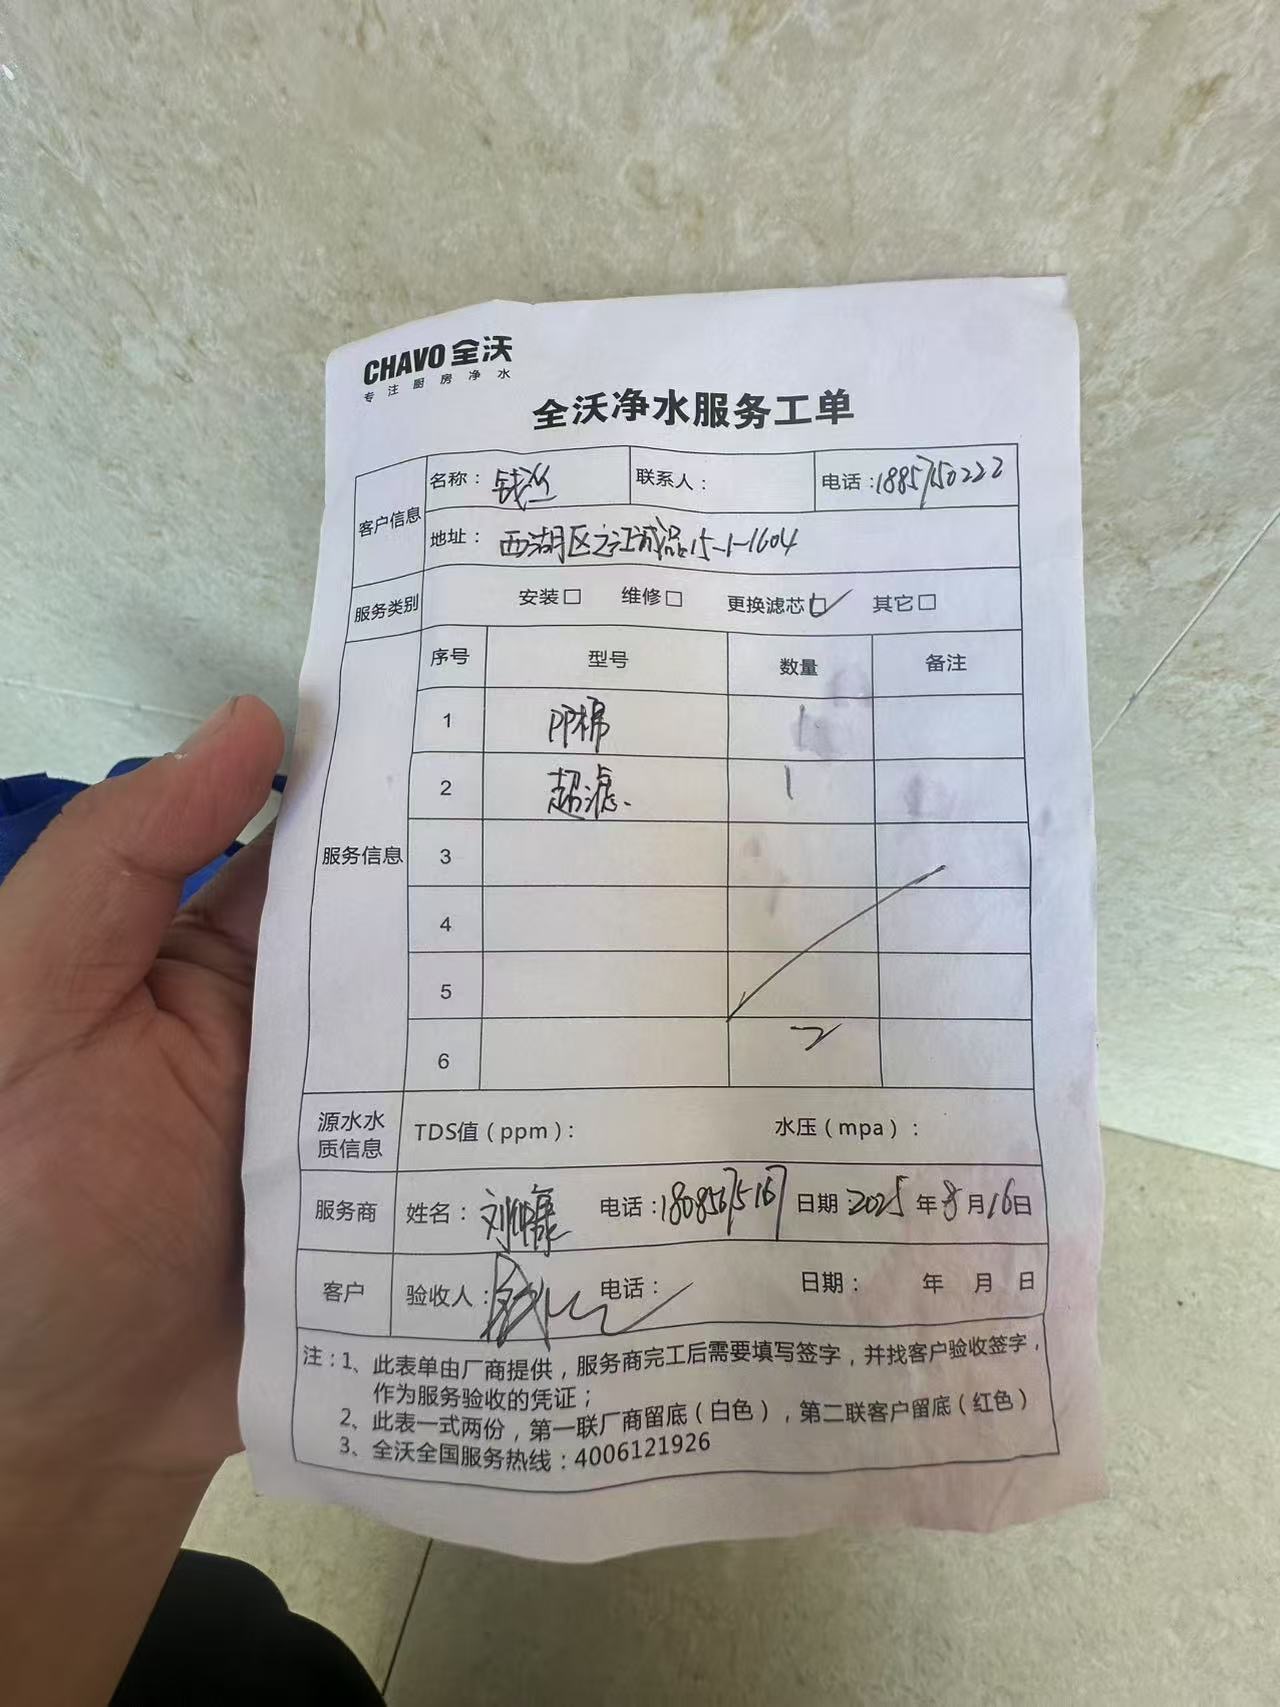 CHAVO 全沃
专注厨房净水
全沃净水服务工单
客户信息
名称：钱 联系人： 电话：18857150222
地址：西湖区之江诚品15-1-1604
服务类别 安装□ 维修□ 更换滤芯□✓ 其它□
服务信息
序号 型号 数量 备注
1 PP棉 1
2 超滤、 1
3
4
5
6 2
源水水质信息 TDS值（ppm）： 水压（mpa）：
服务商 姓名：刘 电话：18085675167 日期：2025年8月16日
客户 验收人： 电话： 日期： 年 月 日
注：1、此表单由厂商提供，服务商完工后需要填写签字，并找客户验收签字，
作为服务验收的凭证；
2、此表一式两份，第一联厂商留底（白色），第二联客户留底（红色）
3、全沃全国服务热线：4006121926